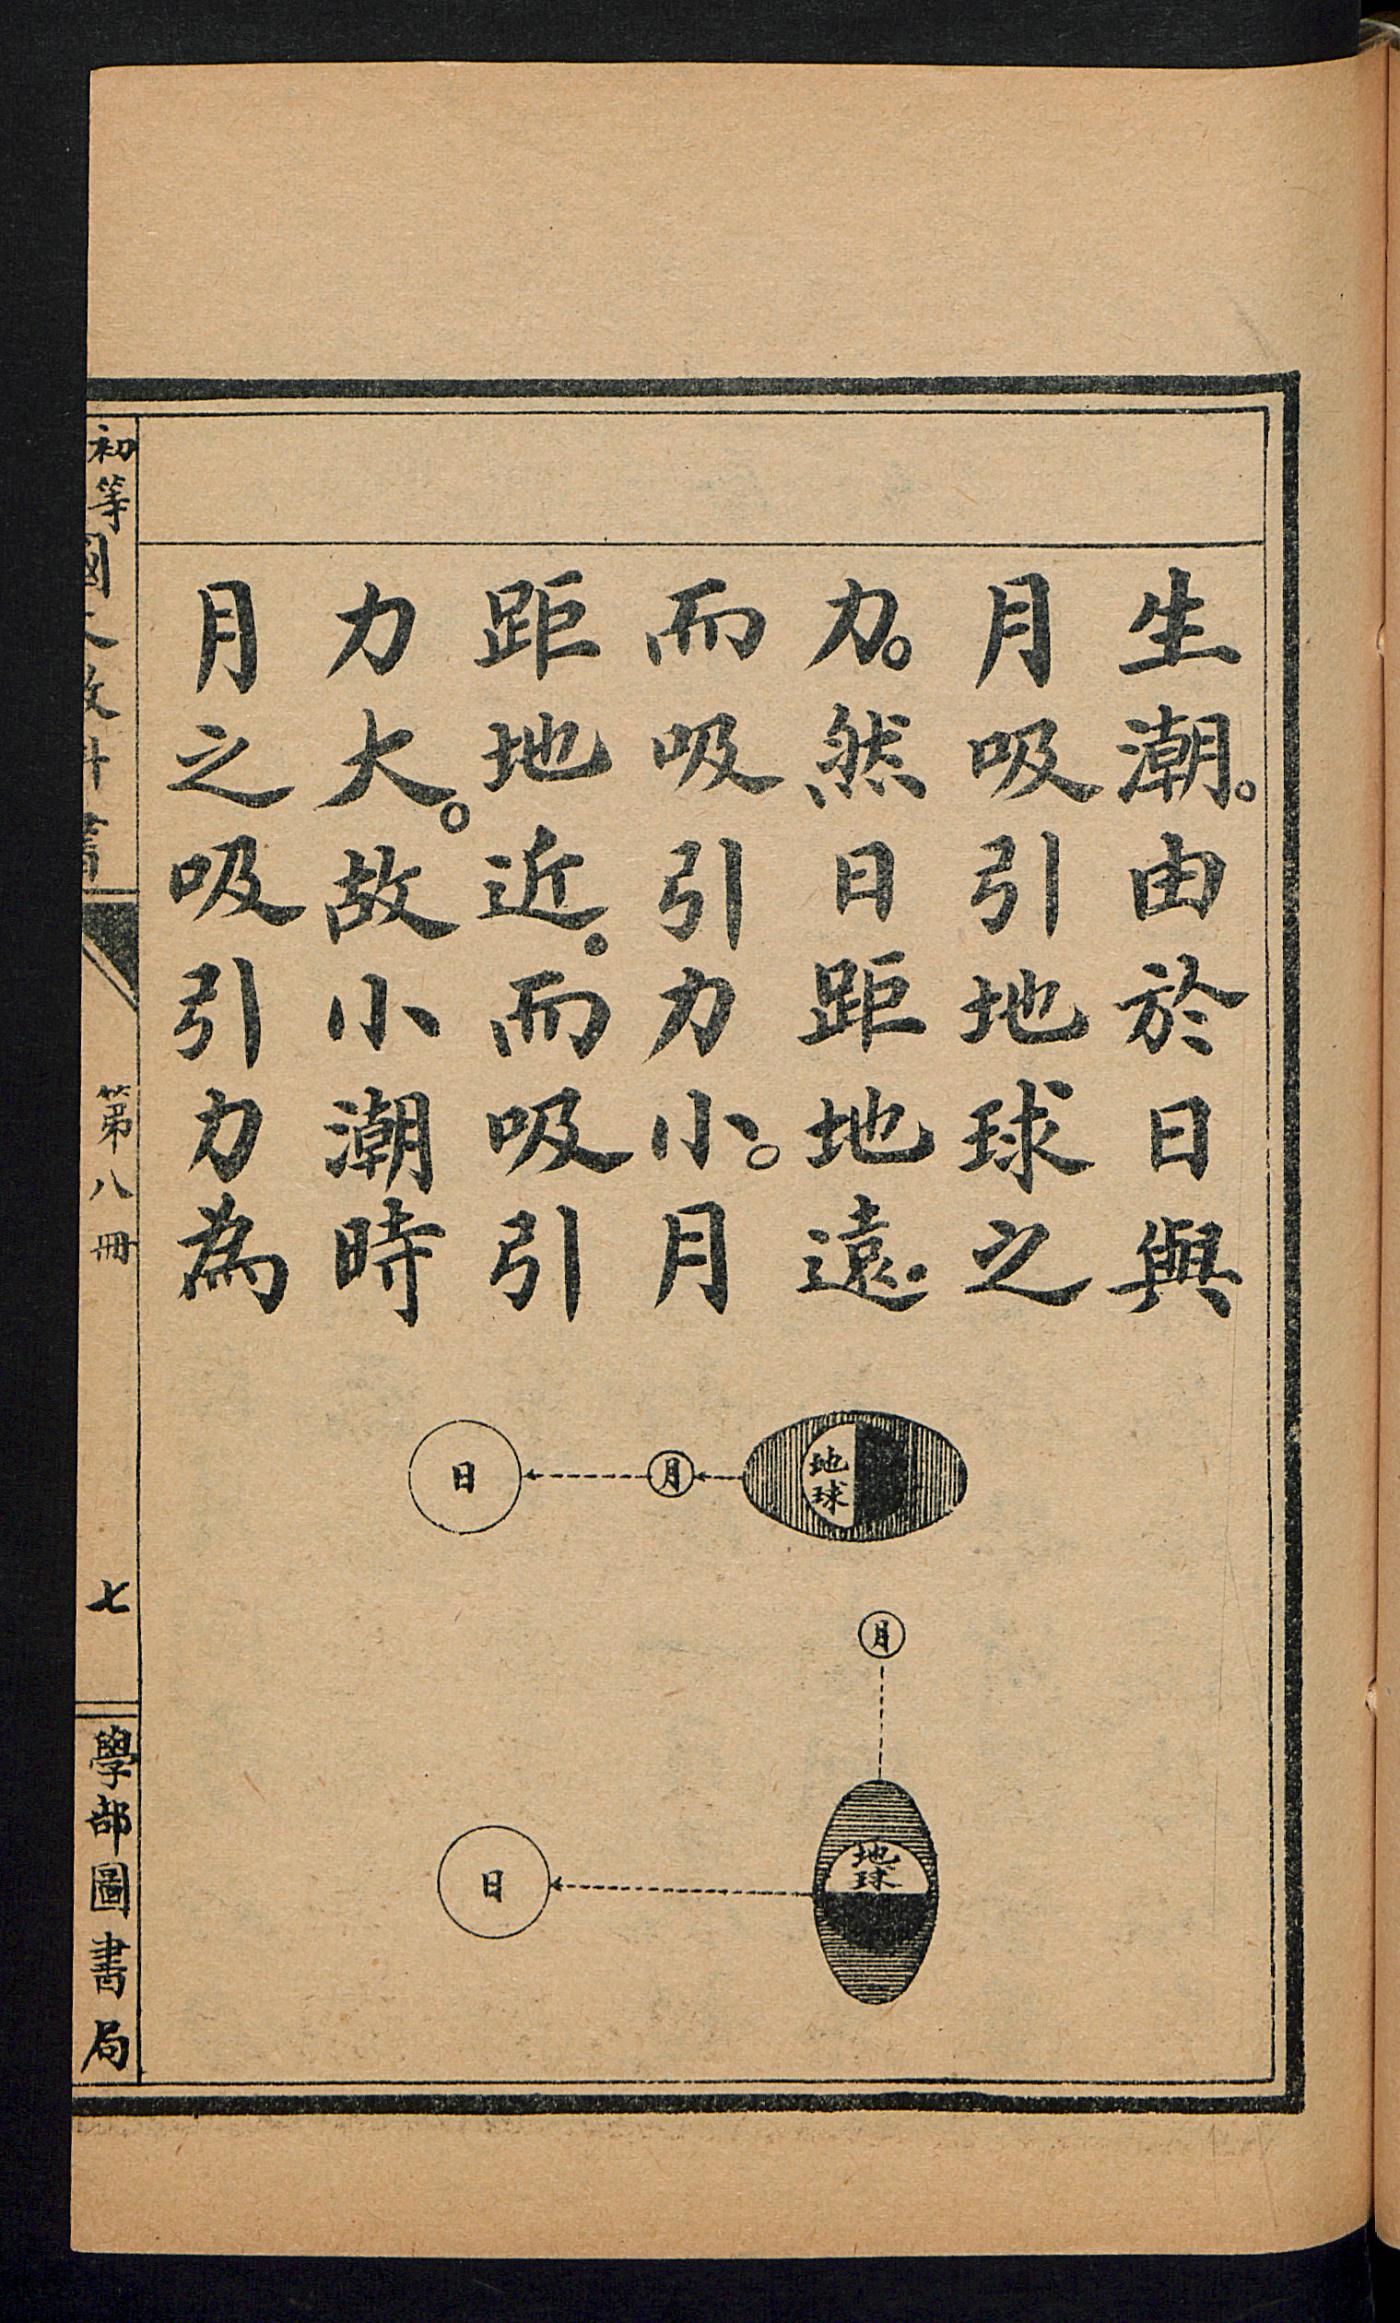 生潮。由於日與
月吸引地球之
力。然日距地遠.
而吸引力小。月
距地近.而吸引
力大。故小潮時
月之吸引力為
地球
月
日
月
地球
日
初等國文教科書
第八冊
七
學部圖書局